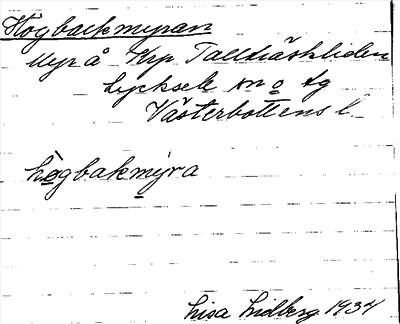 Högbackmyran
Myr å Krp Tallträskliden
Lycksele sn o tg
Västerbottens l.
hògbakmýra
Lisa Lidberg 1934